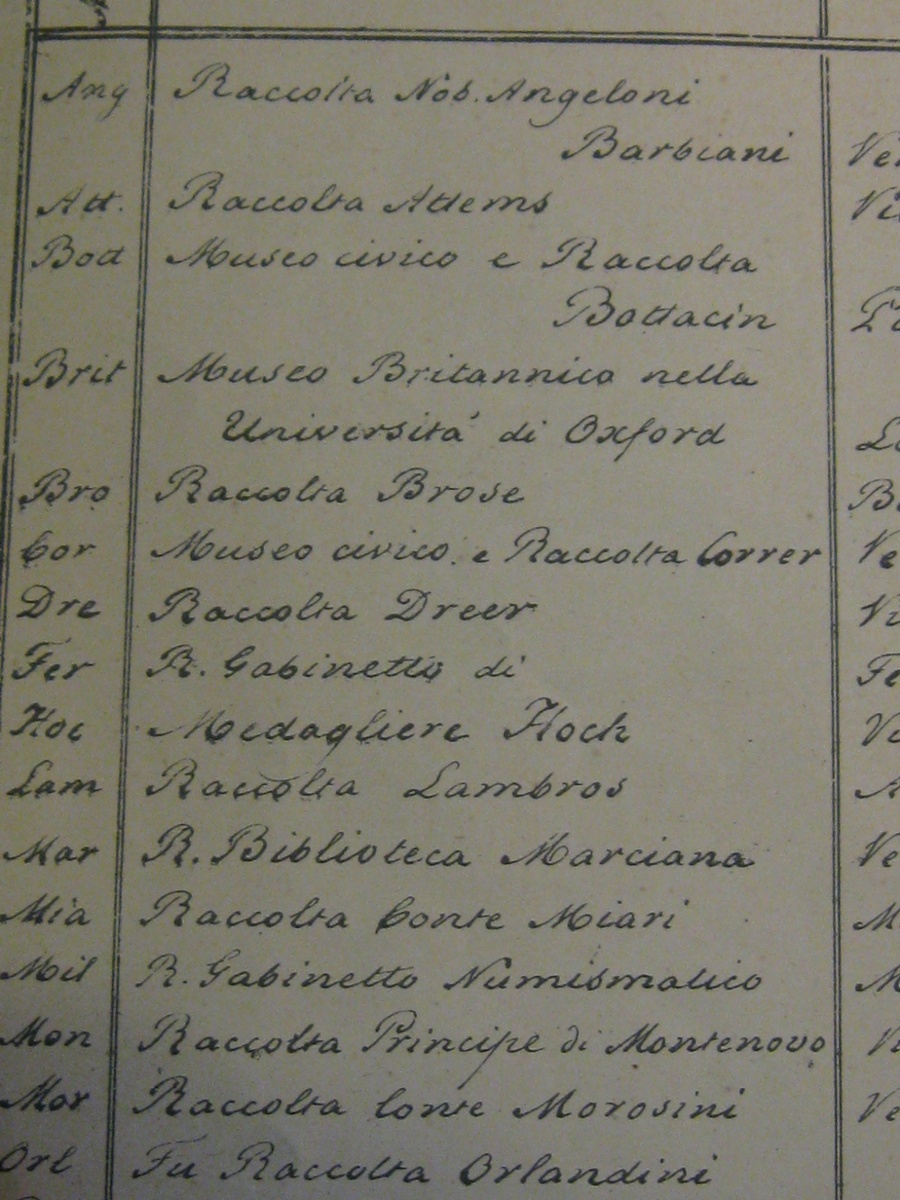 Ang Raccolta Nob. Angeloni
Barbiani Ve
Att. Raccolta Attems Vi
Bott Museo civico e Raccolta
Bottacin
Brit Museo Britannico nella
Università di Oxford Lo
Bro Raccolta Brose Be
Cor Museo civico e Raccolta Correr Ve
Dre Raccolta Dreer Vi
Fer R. Gabinetto di Fe
Hoc Medagliere Hoch
Lam Raccolta Lambros A
Mar R. Biblioteca Marciana Ve
Mia Raccolta Conte Miari M
Mil R. Gabinetto Numismatico M
Mon Raccolta Principe di Montenovo Vi
Mor Raccolta Conte Morosini Ve
Orl Fu Raccolta Orlandini